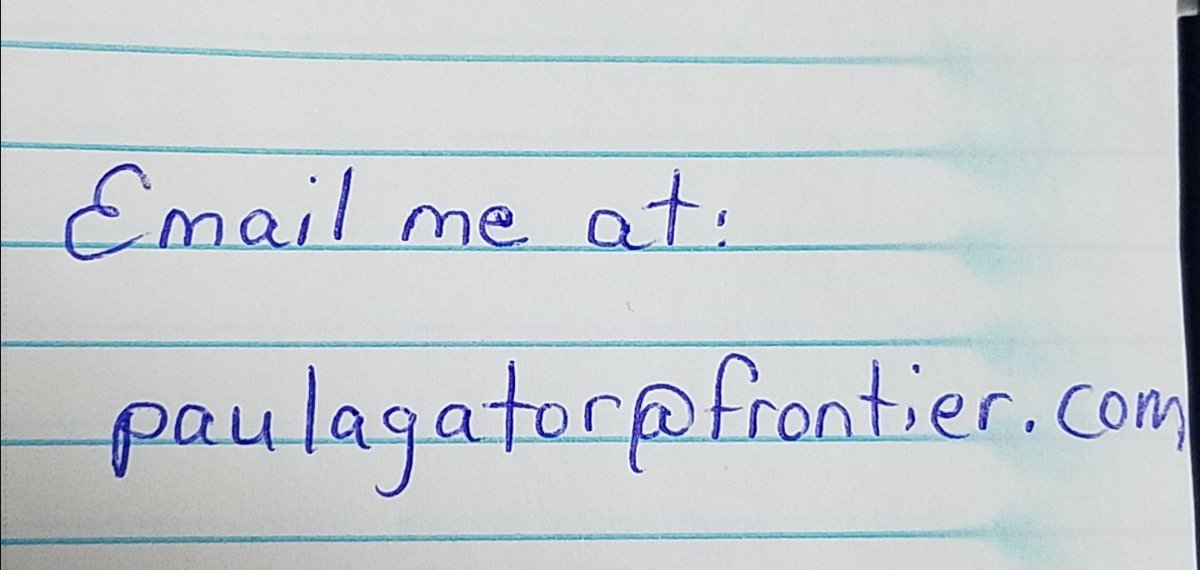 Email me at:
paulagator@frontier.com